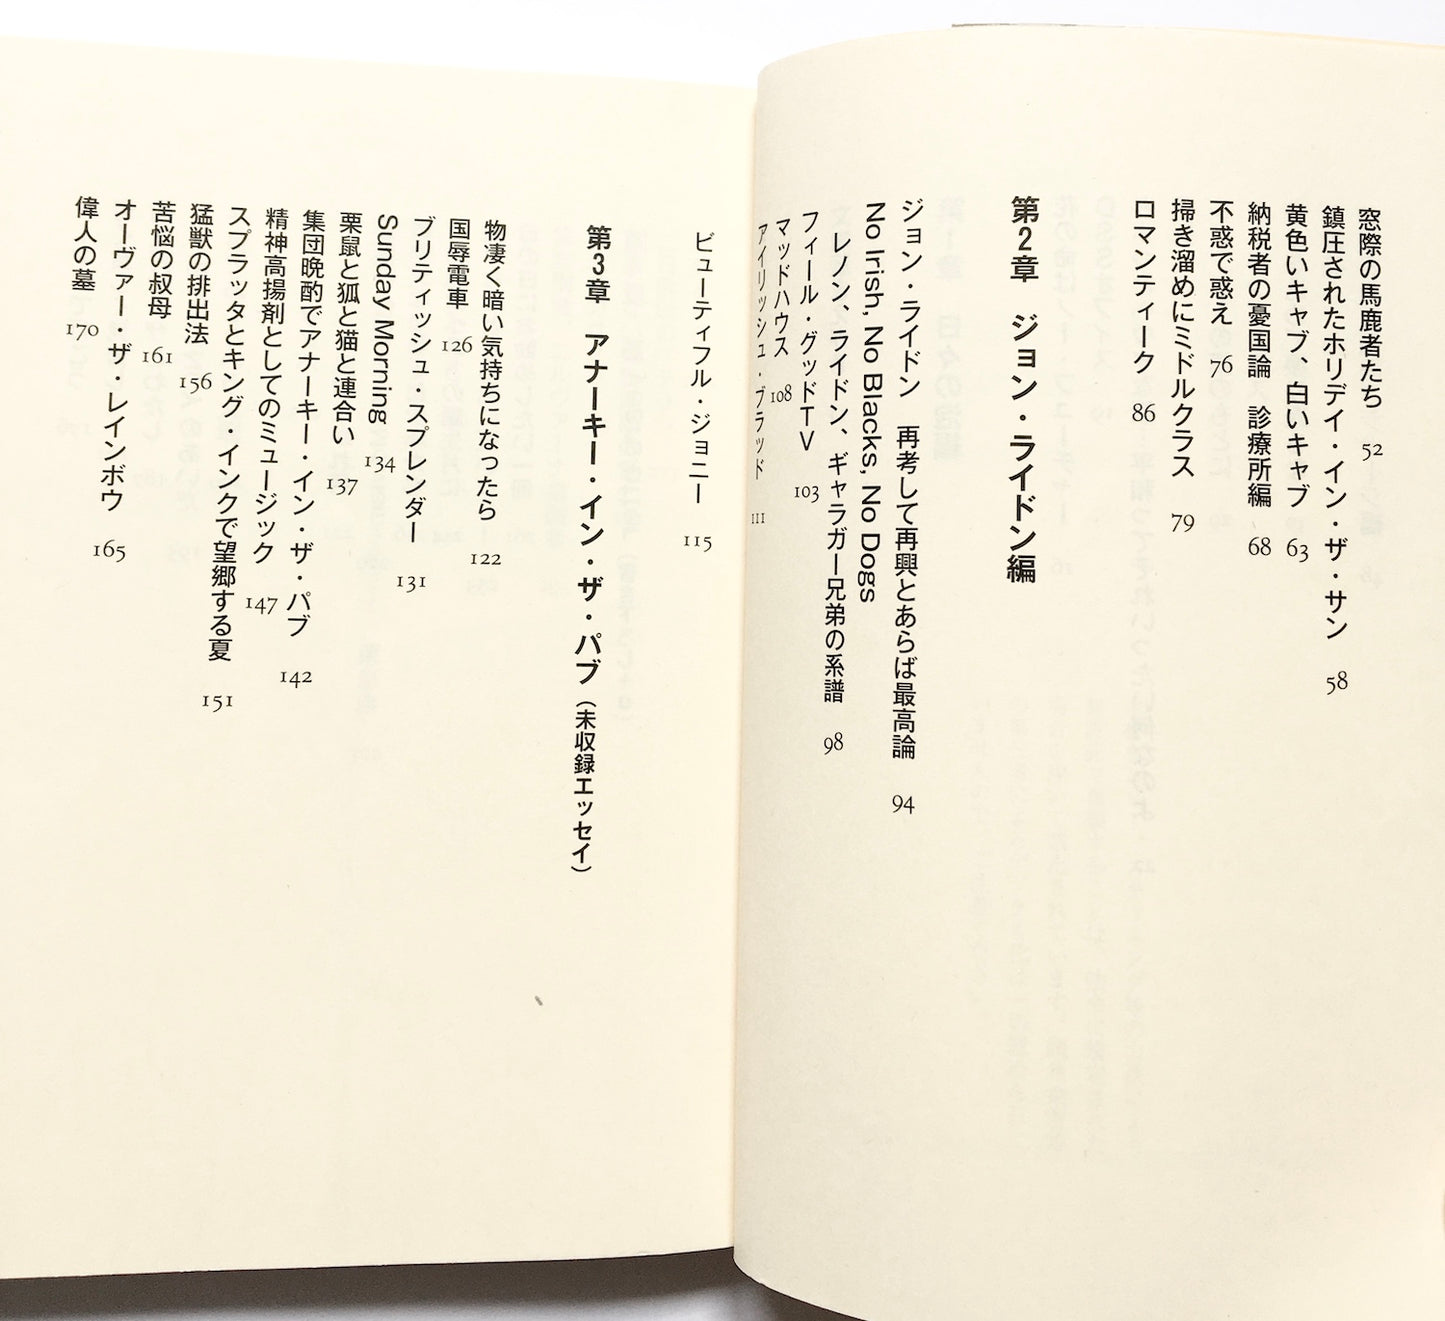 窓際の馬鹿者たち 52
鎮圧されたホリデイ・イン・ザ・サン 58
黄色いキャブ、白いキャブ 63
納税者の憂国論 診療所編 68
不惑で惑え 76
掃き溜めにミドルクラス 79
ロマンティーク 86
第2章 ジョン・ライドン編
ジョン・ライドン 再考して再興とあらば最高論 94
No Irish, No Blacks, No Dogs
レノン、ライドン、ギャラガー兄弟の系譜 98
フィール・グッドTV 103
マッドハウス 108
アイリッシュ・ブラッド 111
ビューティフル・ジョニー 115
第3章 アナーキー・イン・ザ・パブ（未収録エッセイ）
物凄く暗い気持ちになったら 122
国辱電車 126
ブリティッシュ・スプレンダー 131
Sunday Morning 134
栗鼠と狐と猫と連合い 137
集団晩酌でアナーキー・イン・ザ・パブ 142
精神高揚剤としてのミュージック 147
スプラッタとキング・インクで望郷する夏 151
猛獣の排出法 156
苦悩の叔母 161
オーヴァー・ザ・レインボウ 165
偉人の墓 170